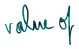 value of